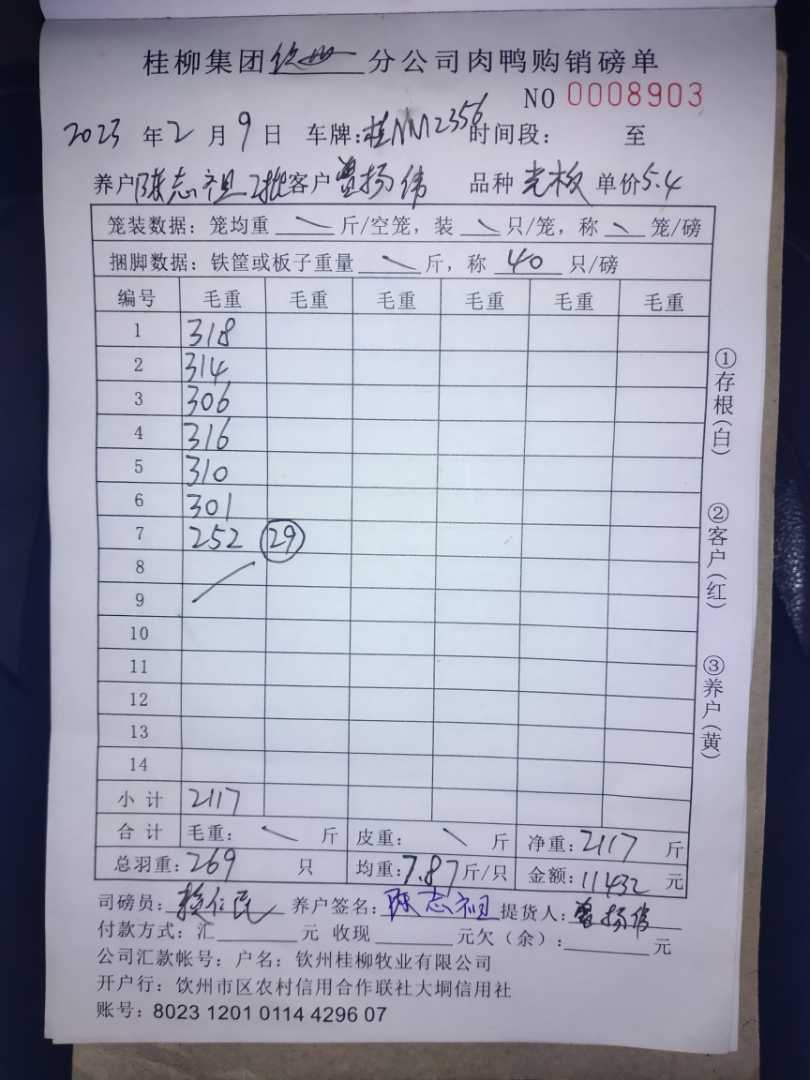 桂柳集团钦州分公司肉鸭购销磅单
NO 0008903
2023年2月9日 车牌:桂NM2356时间段: 至
养户陈志祖2批客户曾扬伟 品种 光板 单价5.4
笼装数据:笼均重 斤/空笼,装 只/笼,称 笼/磅
捆脚数据:铁筐或板子重量 斤,称 40 只/磅
编号 毛重 毛重 毛重 毛重 毛重 毛重
1 318
2 314
3 306
4 316
5 310
6 301
7 252 29
8
9
10
11
12
13
14
小计 2117
合计 毛重: 斤 皮重: 斤 净重:2117 斤
总羽重:269 只 均重:7.87斤/只 金额:11432 元
司磅员: 养户签名:陈志祖 提货人:曾扬伟
付款方式:汇 元 收现 元欠(余): 元
公司汇款帐号:户名:钦州桂柳牧业有限公司
开户行:钦州市区农村信用合作联社大垌信用社
账号:8023 1201 0114 4296 07
①存根(白)
②客户(红)
③养户(黄)